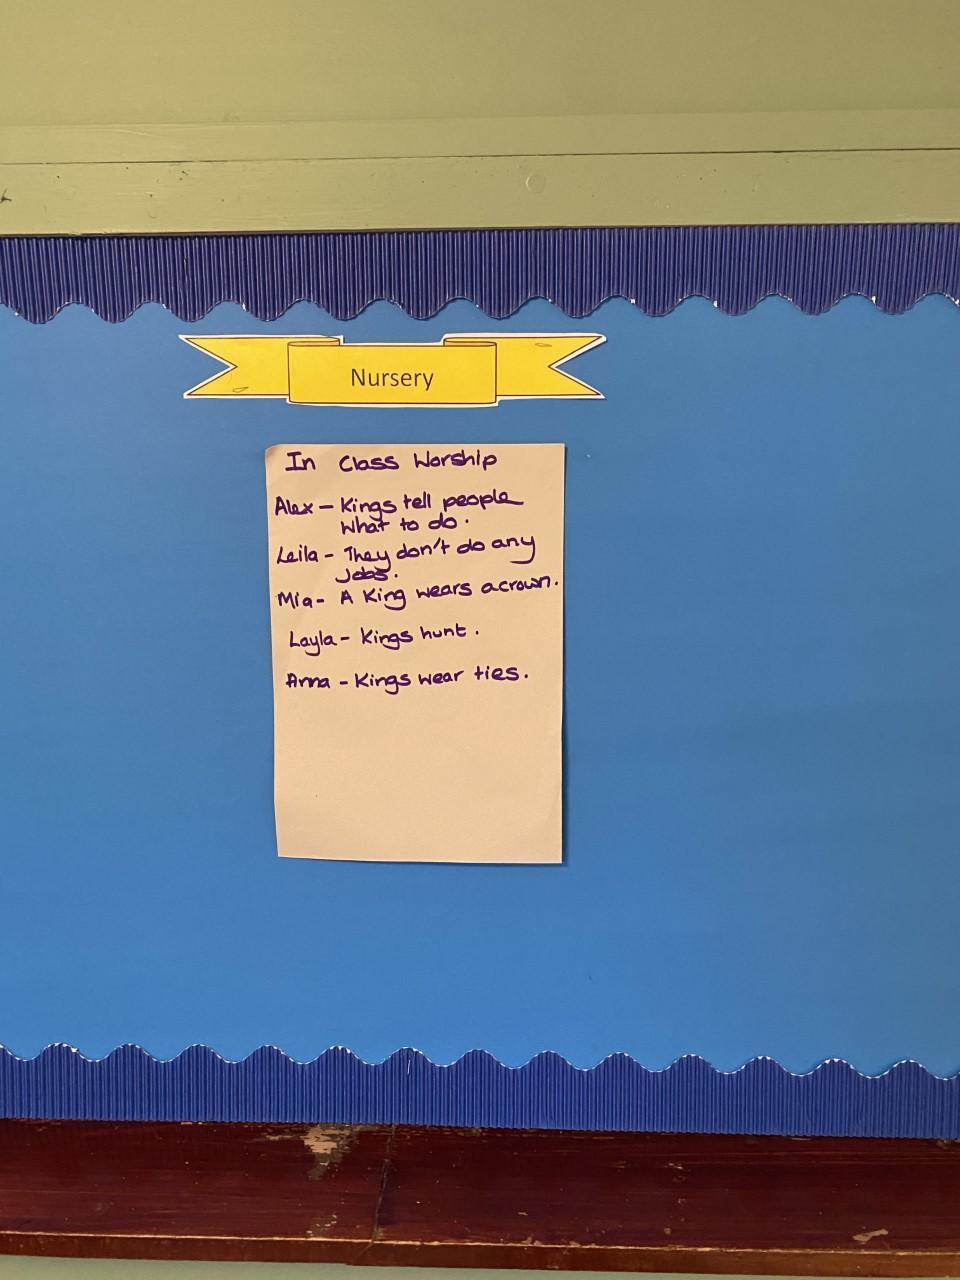 Nursery
In Class Worship
Alex - Kings tell people
What to do.
Leila - They don't do any
Jobs.
Mia - A King wears a crown.
Layla - Kings hunt.
Anna - Kings wear ties.